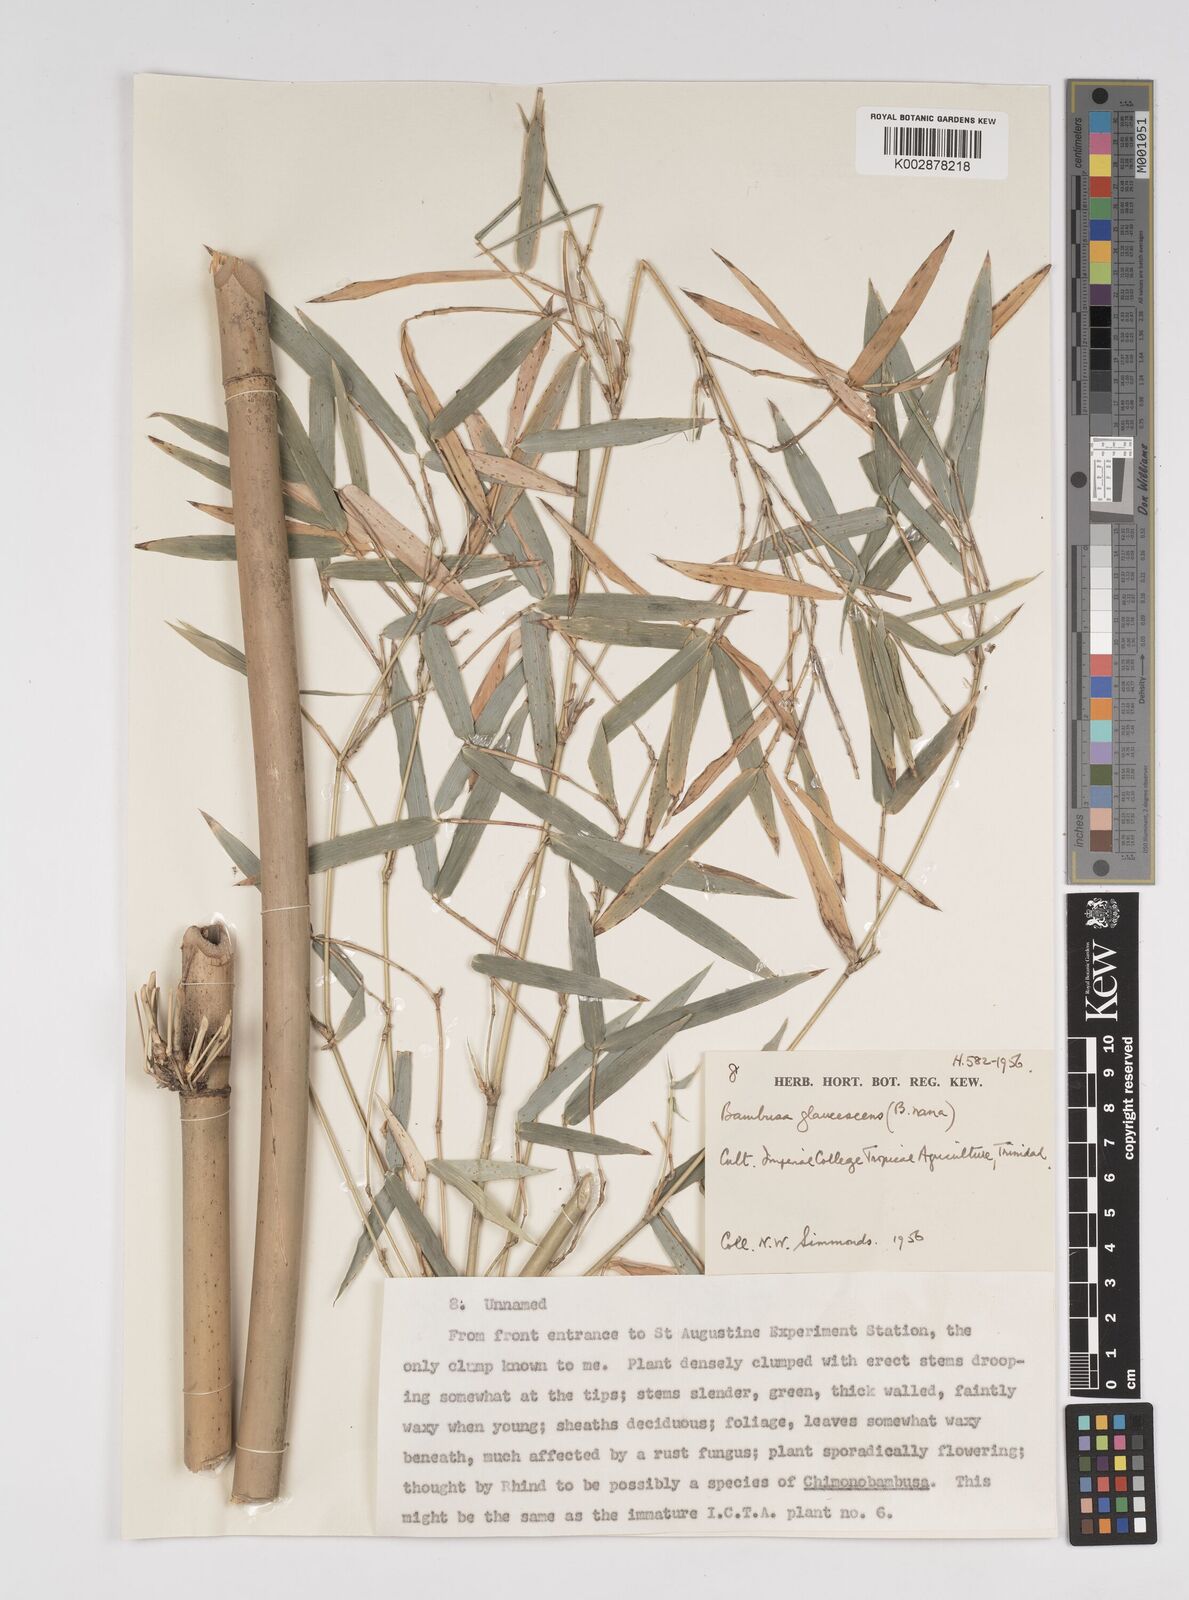 ROYAL BOTANIC GARDENS KEW
K002878218
M001051
centimeters
Don Williams
Density
inches
Royal Botanic Gardens
Kew
copyright reserved
0 1 2 3 4 5 6 7 8 9 10
cm
8
H.582-1956.
HERB. HORT. BOT. REG. KEW.
Bambusa glaucescens (B. nana)
Cult. Imperial College Tropical Agriculture, Trinidad.
Coll. N.W. Simmonds. 1956
8. Unnamed
From front entrance to St Augustine Experiment Station, the
only clump known to me. Plant densely clumped with erect stems droop-
ing somewhat at the tips; stems slender, green, thick walled, faintly
waxy when young; sheaths deciduous; foliage, leaves somewhat waxy
beneath, much affected by a rust fungus; plant sporadically flowering;
thought by Rhind to be possibly a species of Chimonobambusa. This
might be the same as the immature I.C.T.A. plant no. 6.